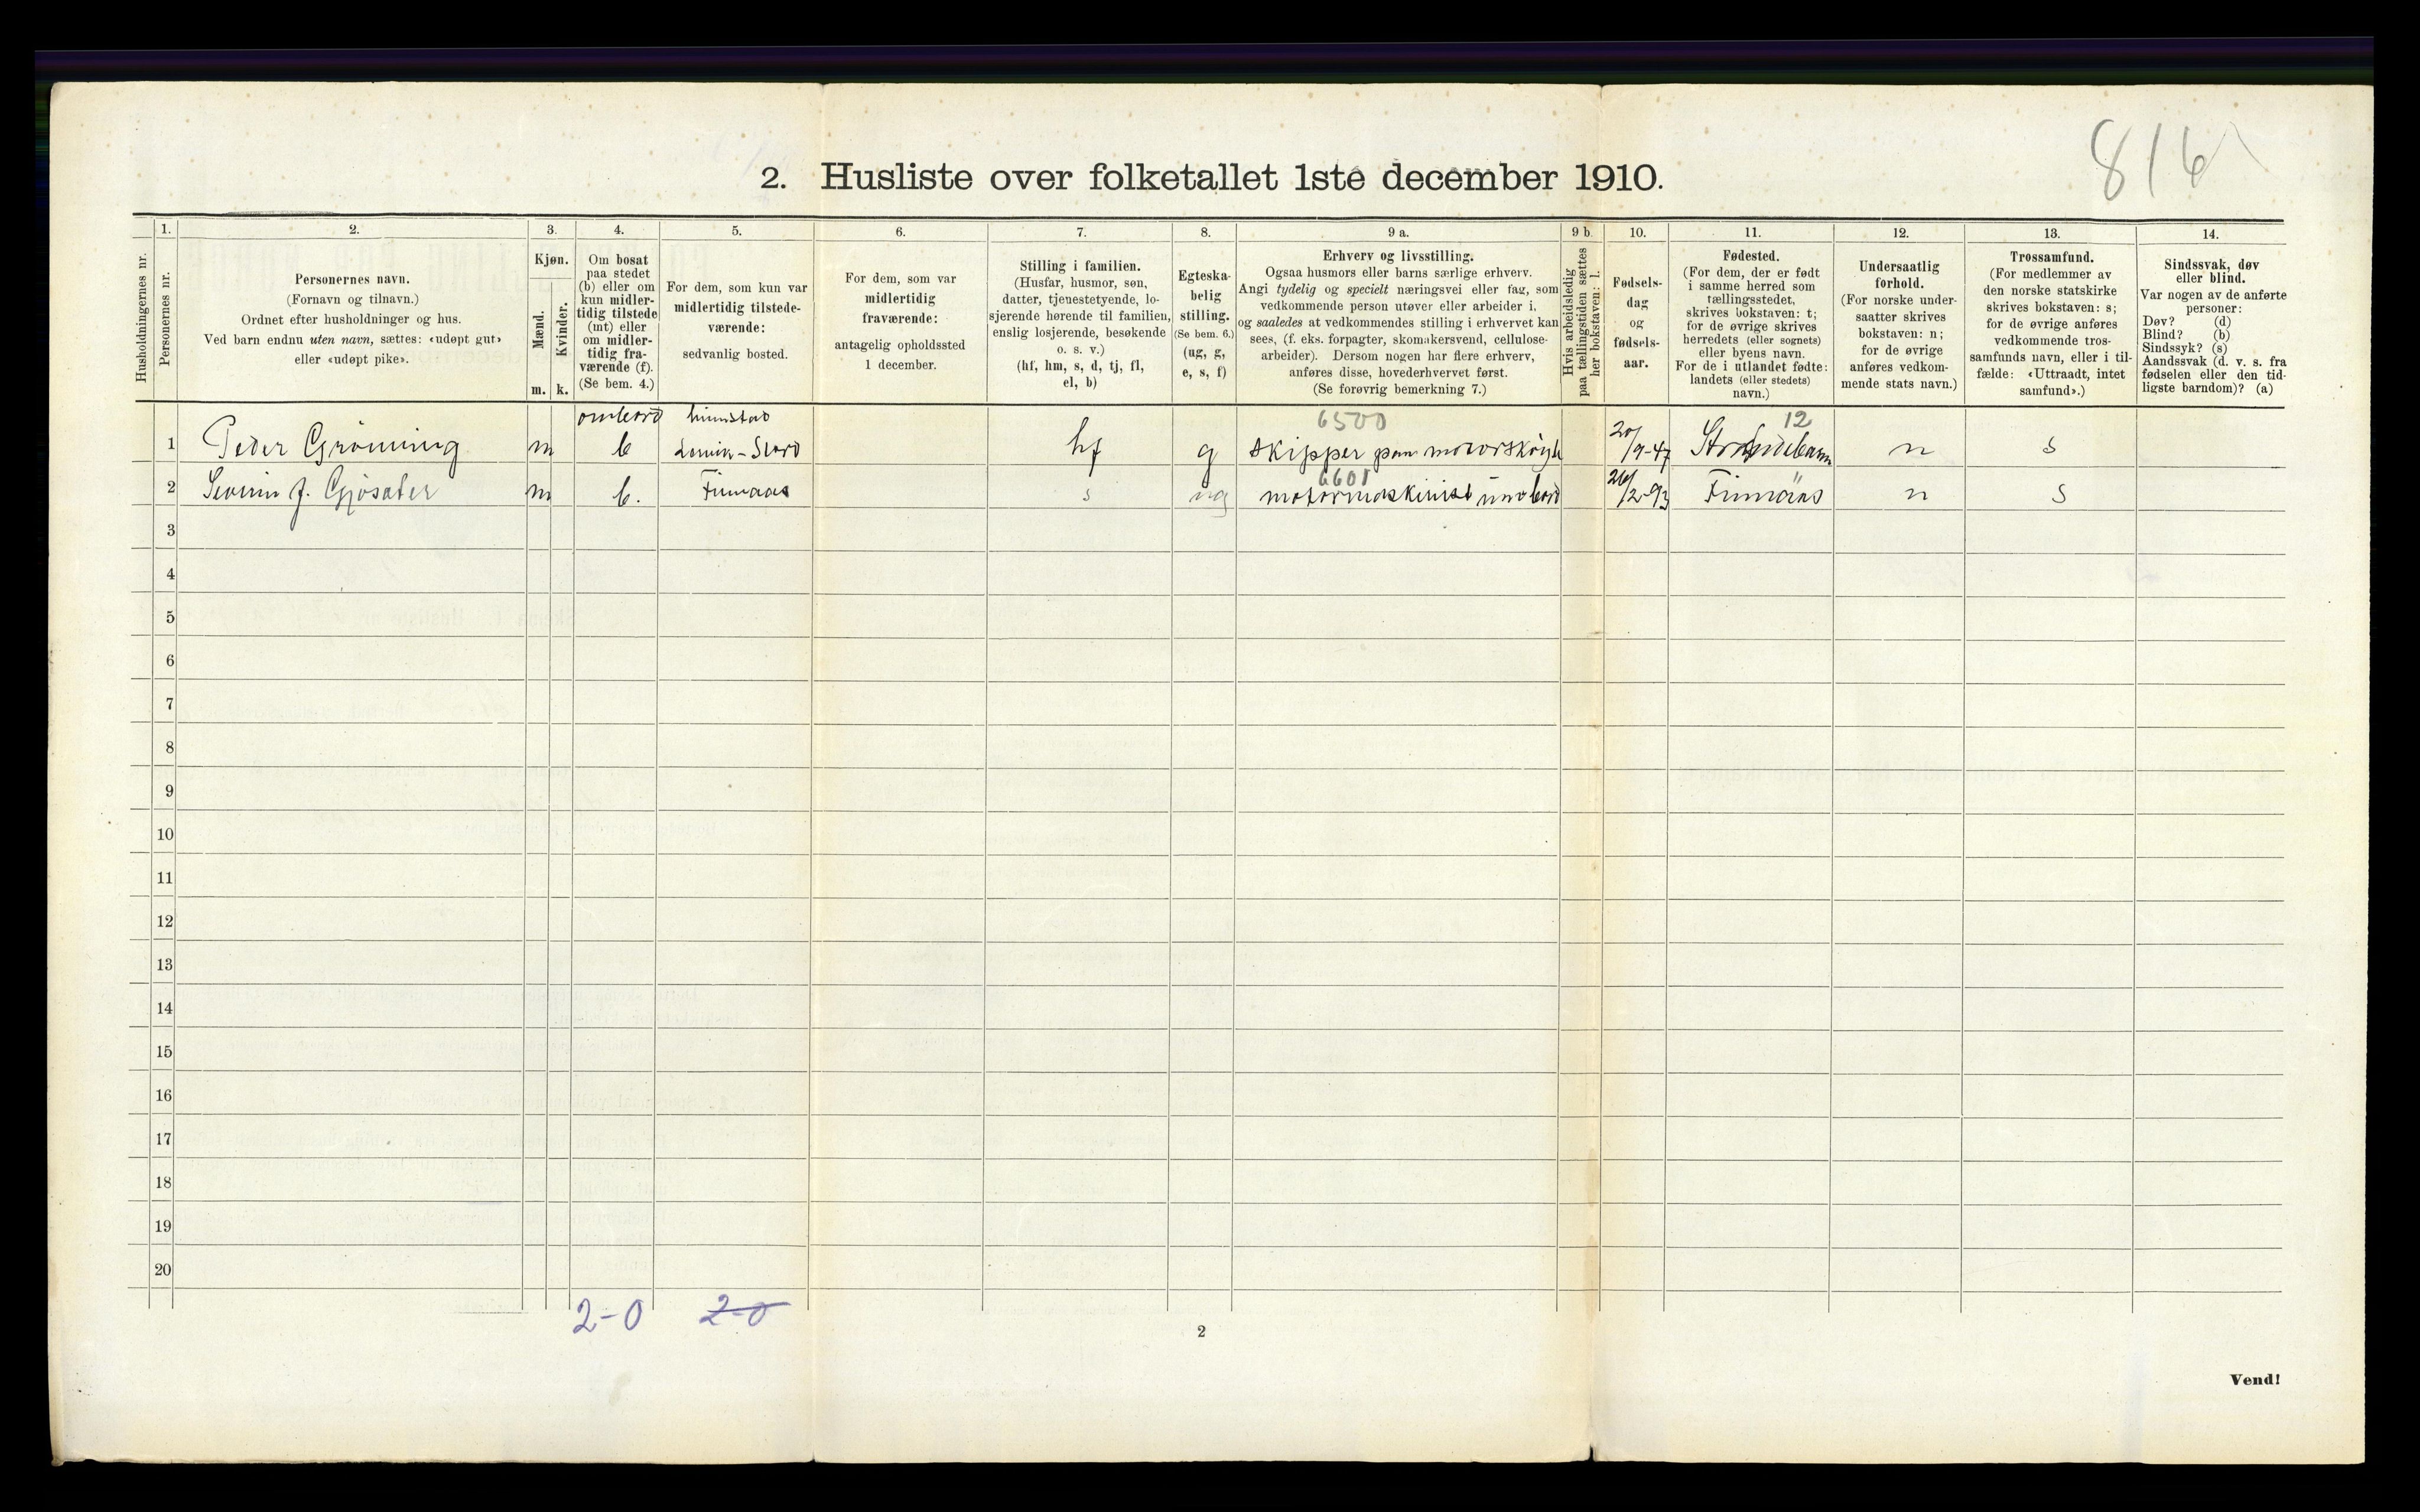 816
2. Husliste over folketallet 1ste december 1910.
Husholdningernes nr.
1.
Personernes nr.
2.
Personernes navn.
(Fornavn og tilnavn.)
Ordnet efter husholdninger og hus.
Ved barn endnu uten navn, sættes: «udøpt gut»
eller «udøpt pike».
3.
Kjøn.
Mænd.
Kvinder.
m. k.
4.
Om bosat
paa stedet
(b) eller om
kun midler-
tidig tilstede
(mt) eller
om midler-
tidig fra-
værende (f).
(Se bem. 4.)
5.
For dem, som kun var
midlertidig tilstede-
værende:
sedvanlig bosted.
6.
For dem, som var
midlertidig
fraværende:
antagelig opholdssted
1 december.
7.
Stilling i familien.
(Husfar, husmor, søn,
datter, tjenestetyende, lo-
sjerende hørende til familien,
enslig losjerende, besøkende
o. s. v.)
(hf, hm, s, d, tj, fl,
el, b)
8.
Egteska-
belig
stilling.
(Se bem. 6.)
(ug, g,
e, s, f)
9 a.
Erhverv og livsstilling.
Ogsaa husmors eller barns særlige erhverv.
Angi tydelig og specielt næringsvei eller fag, som
vedkommende person utøver eller arbeider i,
og saaledes at vedkommendes stilling i erhvervet kan
sees, (f. eks. forpagter, skomakersvend, cellulose-
arbeider). Dersom nogen har flere erhverv,
anføres disse, hovederhvervet først.
(Se forøvrig bemerkning 7.)
9 b.
Hvis arbeidsledig
paa tællingstiden sættes
her bokstaven: l.
10.
Fødsels-
dag
og
fødsels-
aar.
11.
Fødested.
(For dem, der er født
i samme herred som
tællingsstedet,
skrives bokstaven: t;
for de øvrige skrives
herredets (eller sognets)
eller byens navn.
For de i utlandet fødte:
landets (eller stedets)
navn.)
12.
Undersaatlig
forhold.
(For norske under-
saatter skrives
bokstaven: n;
for de øvrige
anføres vedkom-
mende stats navn.)
13.
Trossamfund.
(For medlemmer av
den norske statskirke
skrives bokstaven: s;
for de øvrige anføres
vedkommende tros-
samfunds navn, eller i til-
fælde: «Uttraadt, intet
samfund».)
14.
Sindssvak, døv
eller blind.
Var nogen av de anførte
personer:
Døv? (d)
Blind? (b)
Sindssyk? (s)
Aandssvak (d. v. s. fra
fødselen eller den tid-
ligste barndom)? (a)
ombord 6500 12
1 Peder Grönning m b Stord hf g skipper paa motorskøyte 20/9-47 n s
6601
2 Severin J. Gjøsater m b. Finnaas s ug motormaskinist ombord 26/2-93 Finnaas n s
3
4
5
6
7
8
9
10
11
12
13
14
15
16
17
18
19
20
2-0 2-0
2
Vend!